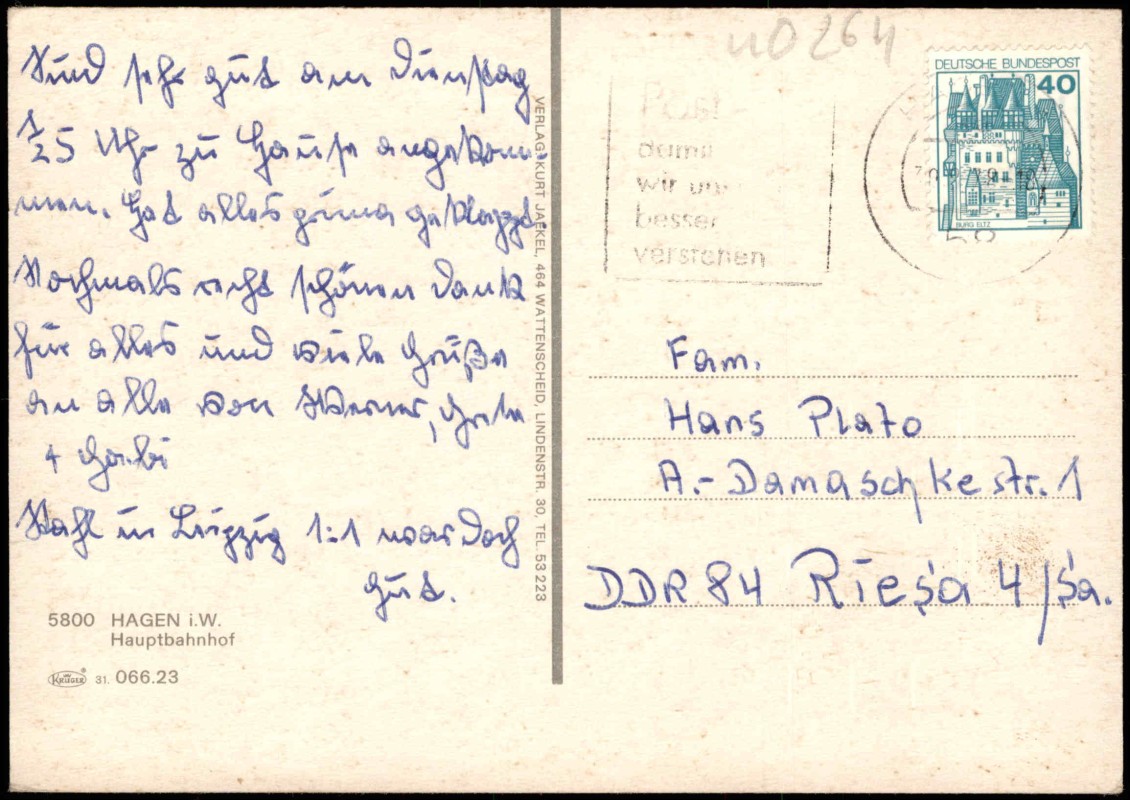 Sind sehr gut am Dienstag
1/25 Uhr zu Hause angekom-
men. Hat alles prima geklappt.
Nochmals recht schönen Dank
für alles und viele Grüße
an alle von Werner, Grete
+ Gabi
Wahl in Leipzig 1:1 war doch
gut.
5800 HAGEN i.W.
Hauptbahnhof
KRÜGER 31. 066.23
VERLAG: KURT JAEKEL, 464 WATTENSCHEID, LINDENSTR. 30, TEL. 53 223
110264
Post
damit
wir uns
besser
verstehen
DEUTSCHE BUNDESPOST
40
BURG ELTZ
58
Fam.
Hans Plato
A.-Damaschkestr. 1
DDR 84 Riesa 4/Sa.